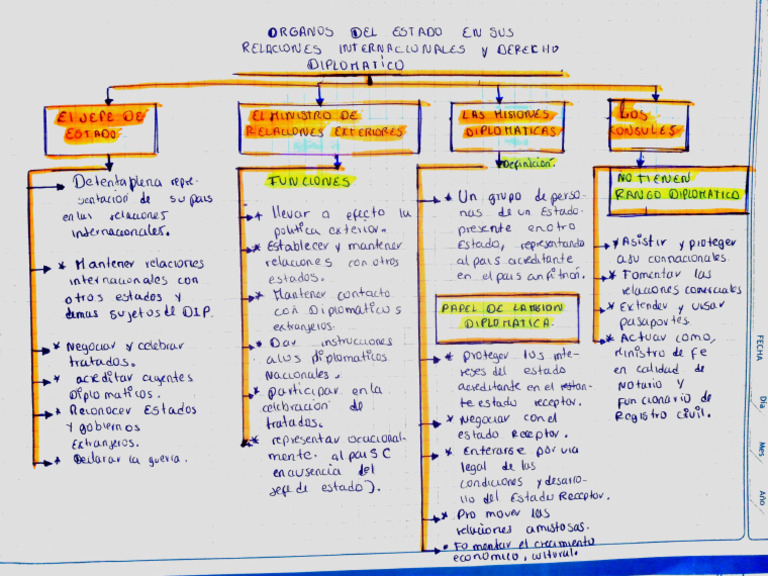 ORGANOS DEL ESTADO EN SUS
RELACIONES INTERNACIONALES Y DERECHO
DIPLOMATICO
El JEFE DE
ESTADO
Detenta plena repre-
sentación de su pais
en las relaciones
internacionales.
* Mantener relaciones
internacionales con
otros estados y
demas sujetos de DIP.
* Negociar y celebrar
tratados.
* acreditar agentes
Diplomaticos.
* Reconocer Estados
y gobiernos
Extranjeros.
* Declarar la guerra.
El MINISTRO DE
RELACIONES EXTERIORES
FUNCIONES
* llevar a efecto la
politica exterior.
* Establecer y mantener
relaciones con otros
estados.
* Mantener contacto
con Diplomaticos
extranjeros.
* Dar instrucciones
a los diplomaticos
Nacionales.
* participar en la
celebración de
tratados.
* representar ocacional-
mente al pais C
en ausencia del
jefe de estado).
LAS MISIONES
DIPLOMATICAS
Definición.
* Un grupo de perso-
nas de un Estado
presente en otro
Estado, representando
al pais acreditante
en el pais anfitrión.
PAPEL DE LA MISION
DIPLOMATICA.
* Proteger los inte-
reses del estado
acreditante en el
te estado receptor.
* Negociar con el
estado Receptor.
* Enterarse por via
legal de las
condiciones y desarro-
llo del Estado Receptor.
* Pro mover las
relaciones amistosas.
* Fomentar el crecimiento
economico, cultural.
Los
CONSULES
NO TIENEN
RANGO DIPLOMATICO
* Asistir y proteger
a su connacionales.
* Fomentar las
relaciones comerciales
* Extender y visar
pasaportes.
* Actuar como,
Ministro de Fe
en calidad de
Notario y
Funcionario de
Registro Civil.
FECHA
Día
Mes
Año